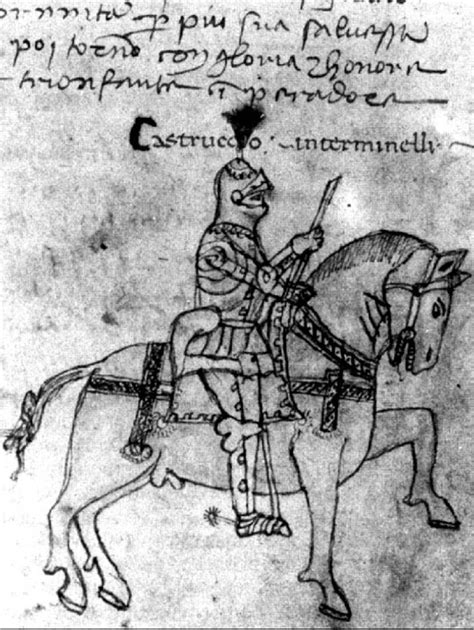 p piu sua salvessa
poi torno con gloria Zhonore
trionfante imperadore
Castruccio interminelli